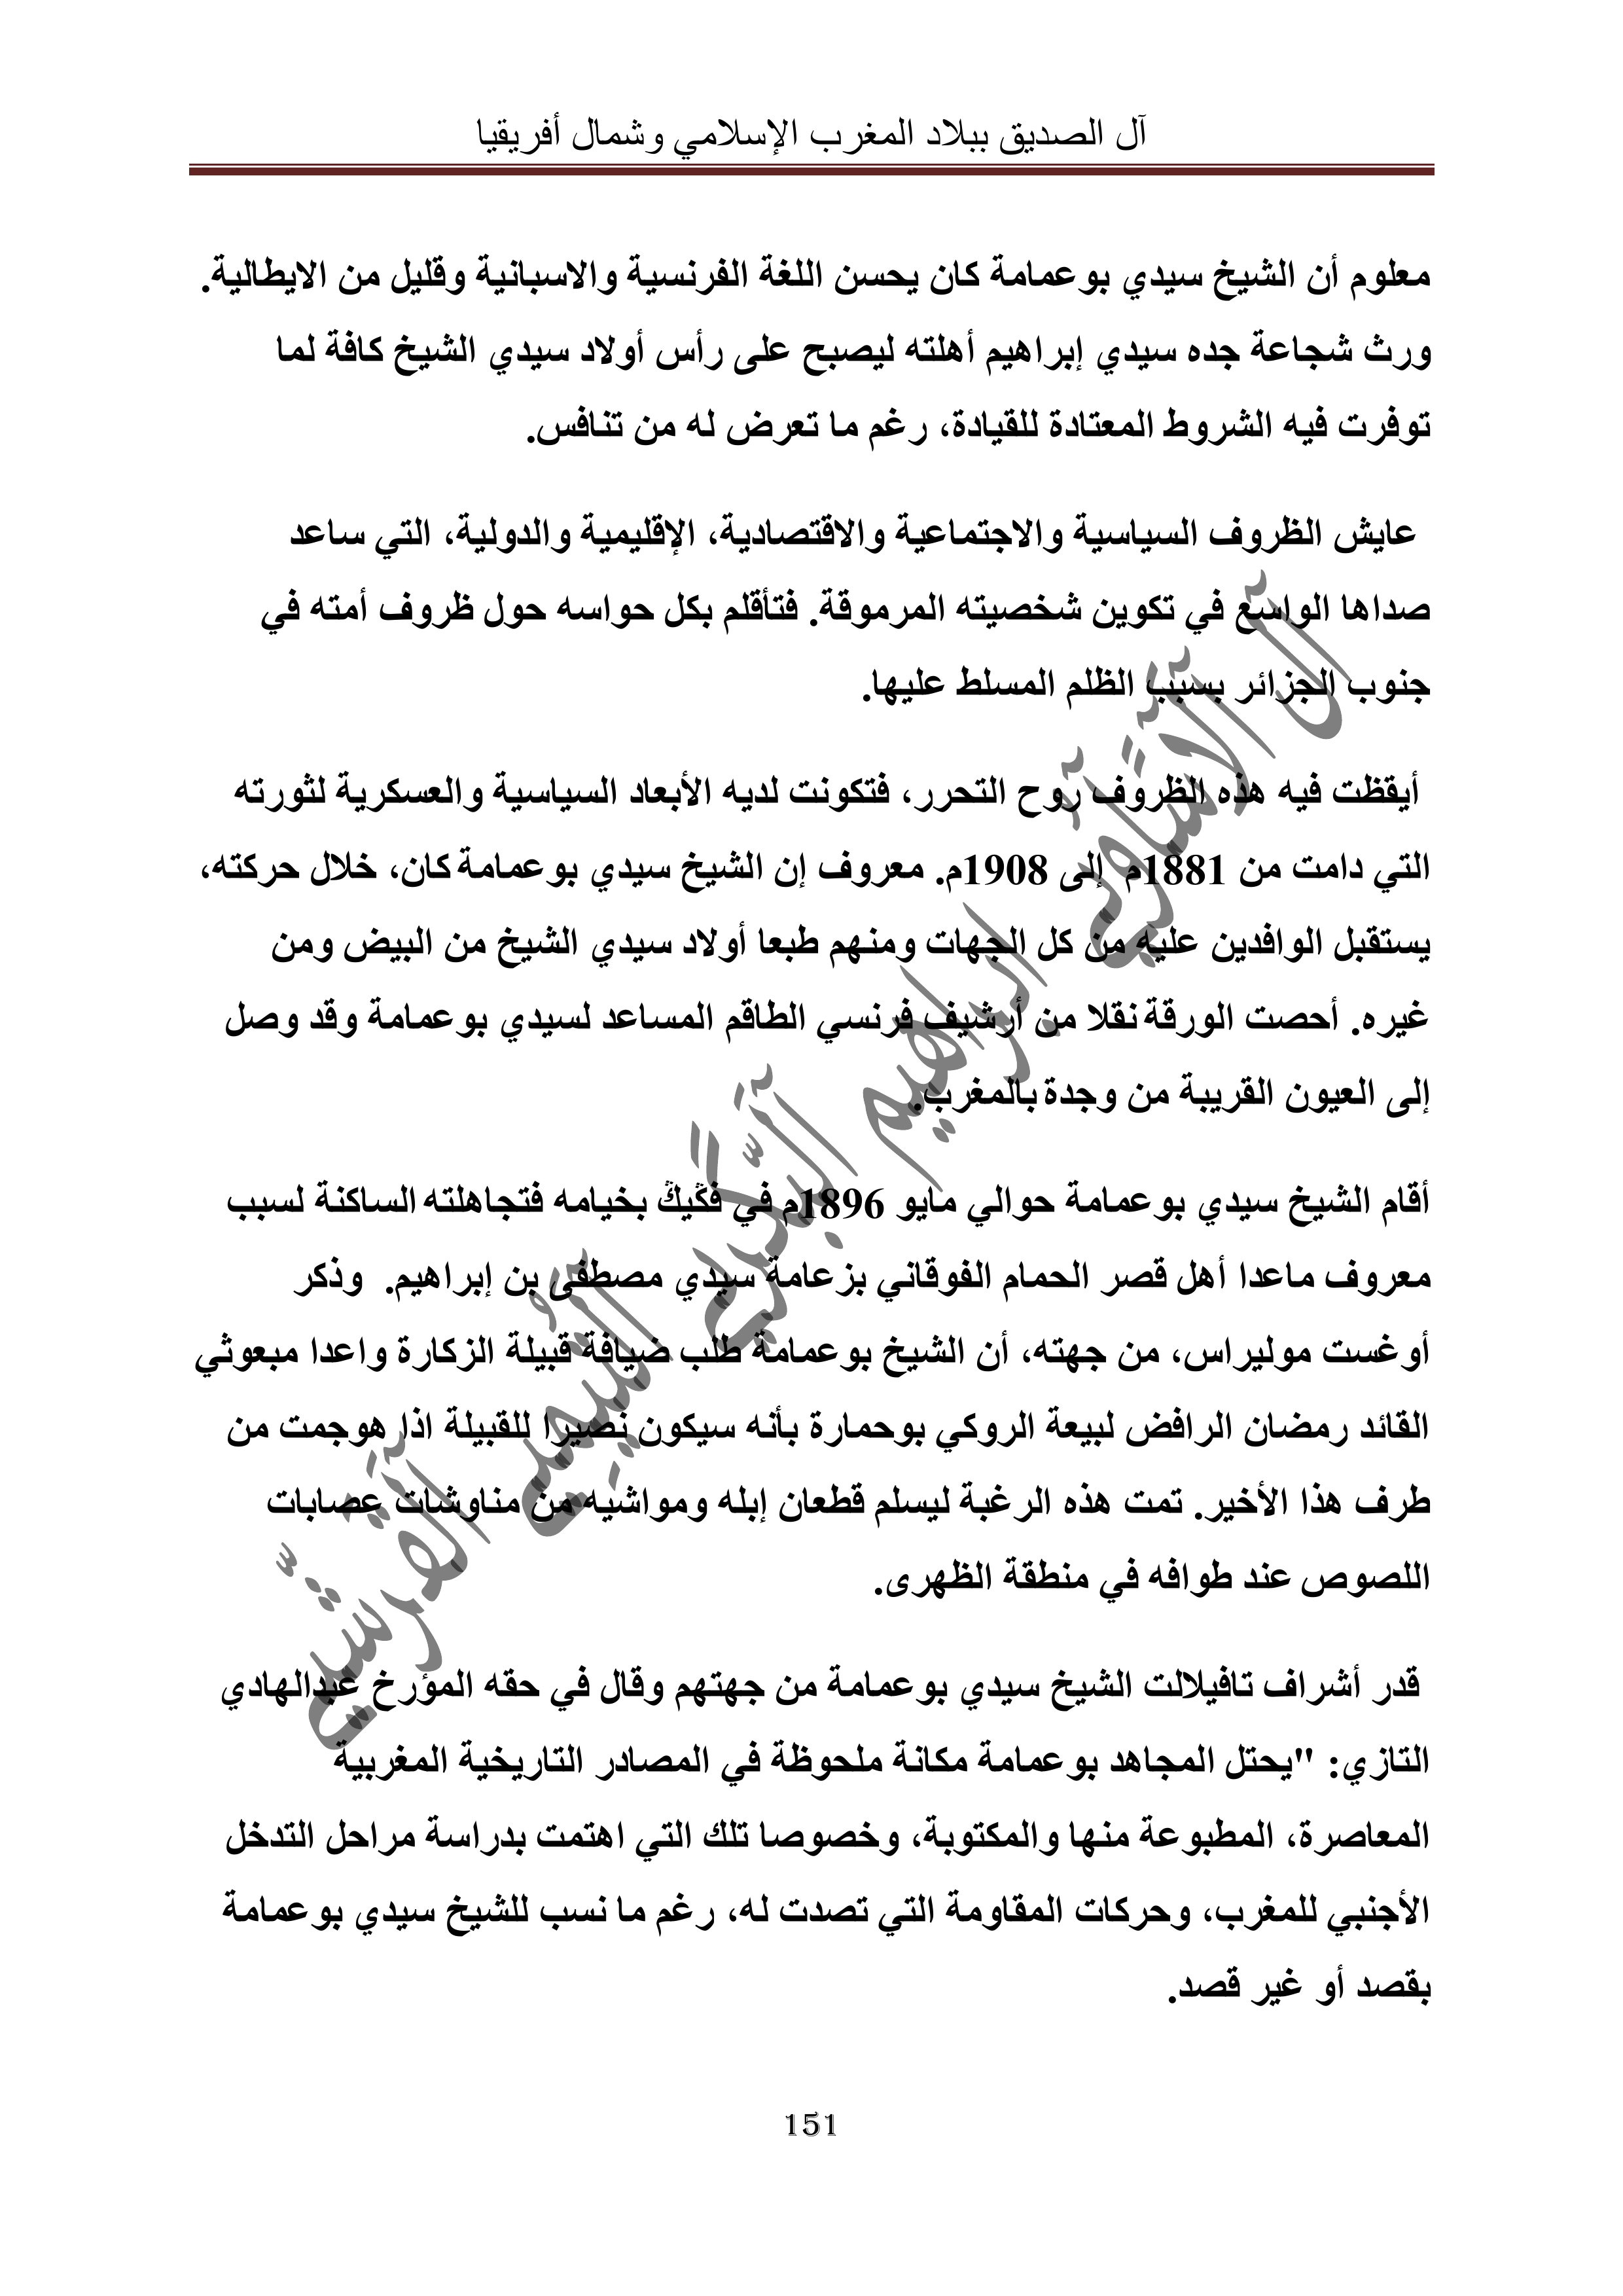 آل الصديق ببلاد المغرب الإسلامي وشمال أفريقيا
معلوم أن الشيخ سيدي بوعمامة كان يحسن اللغة الفرنسية والاسبانية وقليل من الايطالية.
ورث شجاعة جده سيدي إبراهيم أهلته ليصبح على رأس أولاد سيدي الشيخ كافة لما
توفرت فيه الشروط المعتادة للقيادة، رغم ما تعرض له من تنافس.
عايش الظروف السياسية والاجتماعية والاقتصادية، الإقليمية والدولية، التي ساعد
صداها الواسع في تكوين شخصيته المرموقة. فتأقلم بكل حواسه حول ظروف أمته في
جنوب الجزائر بسبب الظلم المسلط عليها.
أيقظت فيه هذه الظروف روح التحرر، فتكونت لديه الأبعاد السياسية والعسكرية لثورته
التي دامت من 1881م إلى 1908م. معروف إن الشيخ سيدي بوعمامة كان، خلال حركته،
يستقبل الوافدين عليه من كل الجهات ومنهم طبعا أولاد سيدي الشيخ من البيض ومن
غيره. أحصت الورقة نقلا من أرشيف فرنسي الطاقم المساعد لسيدي بوعمامة وقد وصل
إلى العيون القريبة من وجدة بالمغرب.
أقام الشيخ سيدي بوعمامة حوالي مايو 1896م في فڭيڭ بخيامه فتجاهلته الساكنة لسبب
معروف ماعدا أهل قصر الحمام الفوقاني بزعامة سيدي مصطفى بن إبراهيم. وذكر
أوغست موليراس، من جهته، أن الشيخ بوعمامة طلب ضيافة قبيلة الزكارة واعدا مبعوثي
القائد رمضان الرافض لبيعة الروكي بوحمارة بأنه سيكون نصيرا للقبيلة اذا هوجمت من
طرف هذا الأخير. تمت هذه الرغبة ليسلم قطعان إبله ومواشيه من مناوشات عصابات
اللصوص عند طوافه في منطقة الظهرى.
قدر أشراف تافيلالت الشيخ سيدي بوعمامة من جهتهم وقال في حقه المؤرخ عبدالهادي
التازي: "يحتل المجاهد بوعمامة مكانة ملحوظة في المصادر التاريخية المغربية
المعاصرة، المطبوعة منها والمكتوبة، وخصوصا تلك التي اهتمت بدراسة مراحل التدخل
الأجنبي للمغرب، وحركات المقاومة التي تصدت له، رغم ما نسب للشيخ سيدي بوعمامة
بقصد أو غير قصد.
151